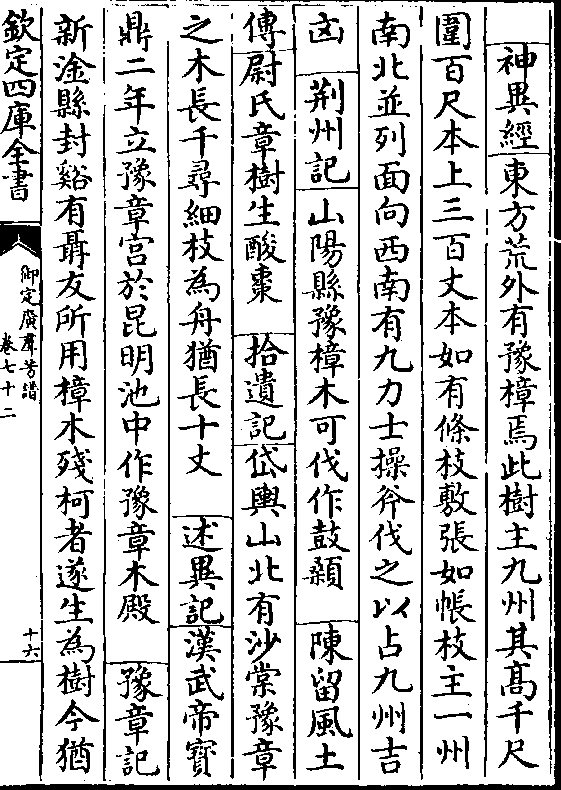 神異經東方荒外有豫樟焉此樹主九州其髙千尺
圍百尺本上三百丈本如有條枝敷張如帳枝主一州
南北並列面向西南有九力士操斧伐之以占九州吉
凶　荆州記山陽縣豫樟木可伐作鼓顙　陳留風土
傳尉氏章樹生酸棗　拾遺記岱輿山北有沙棠豫章
之木長千尋細枝為舟猶長十丈　述異記漢武帝寳
鼎二年立豫章宫於昆明池中作豫章木殿　豫章記
新淦縣封谿有聶友所用樟木殘柯者遂生為樹今猶
欽定四庫全書
御定廣羣芳譜
卷七十二
十六